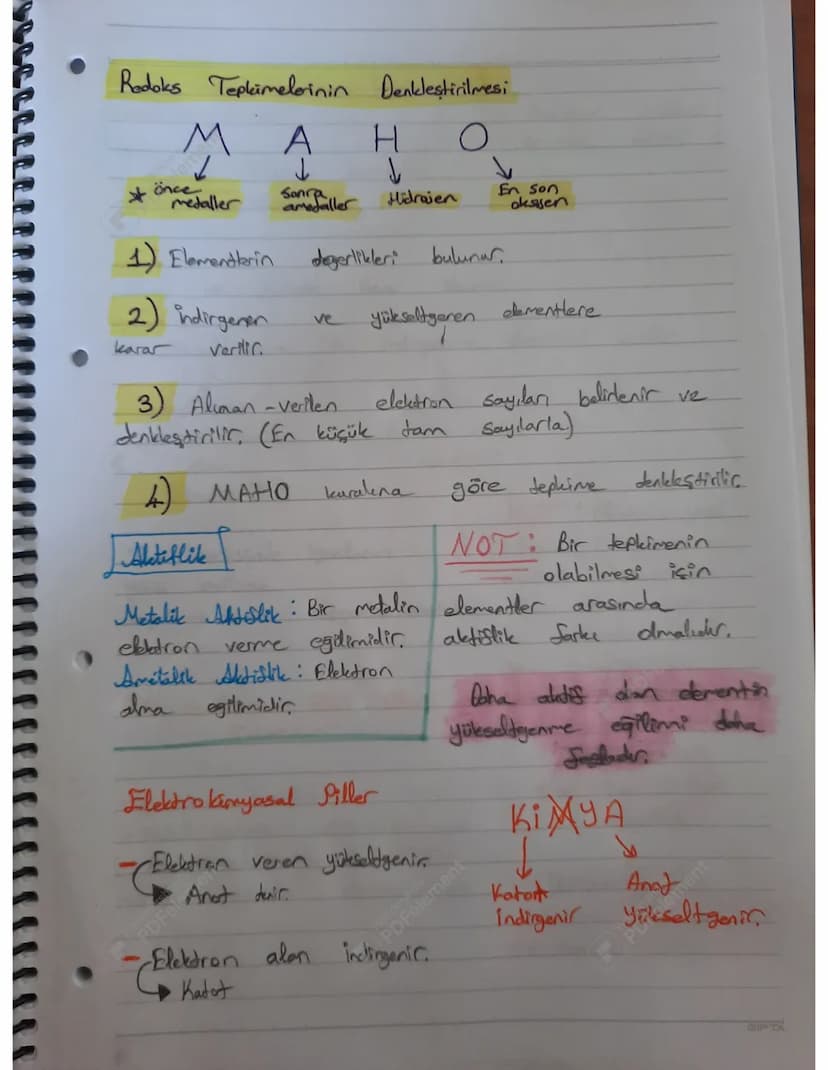 Redoks Tepkimelerinin Denkleştirilmesi
M A H O
* önce metaller
sonra ametaller
Hidrojen
En son oksijen
1) Elementlerin değerlikleri bulunur.
2) İndirgenen ve yükseltgenen elementlere
karar verilir.
3) Alınan-verilen elektron sayıları belirlenir ve
denkleştirilir. (En küçük tam sayılarla)
4) MAHO kuralına göre tepkime denkleştirilir.
Aktiflik
Metalik Aktiflik: Bir metalin
elektron verme eğilimidir.
Ametalik Aktiflik: Elektron
alma egilimidir.
NOT: Bir tepkimenin
olabilmesi için
elementler arasında
aktiflik farkı olmalıdır.
Daha aktif olan elementin
yükseltgenme eğilimi daha
fazladır.
Elektrokimyasal Piller
- Elektron veren yükseltgenir.
Anot denir.
- Elektron alan indirgenir.
Katot
KİMYA
Katot
İndirgenir
Anot
Yükseltgenir.
PDFelement
PDFelement
PDFelement